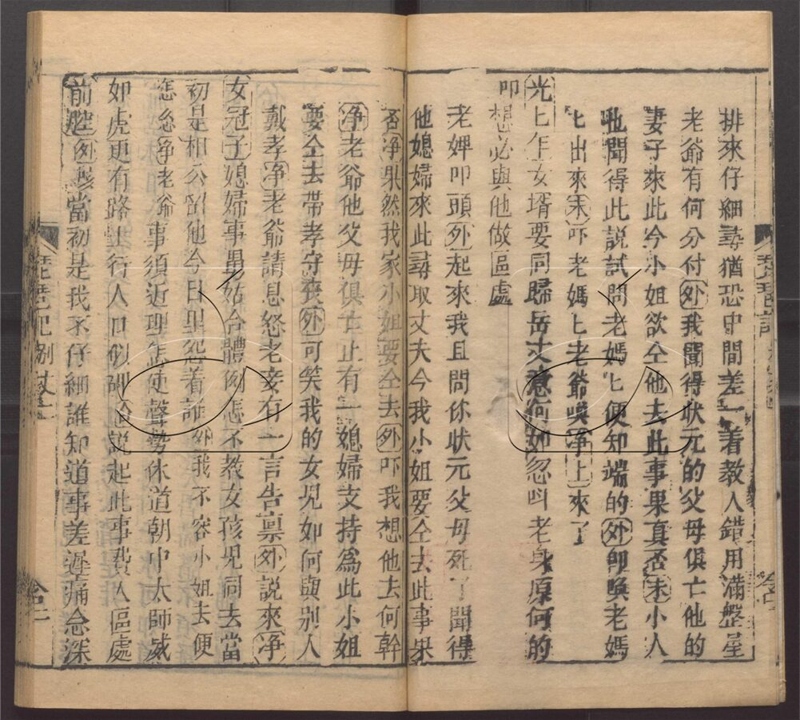 排來仔細尋猶恐中間差一着教人錯用滿盤星
老爺有何分付外我聞得狀元的父母俱亡他的
妻子來此今小姐欲仝他去此事果真否末小人
也聞得此説試問老媽匕便知端的外卽喚老媽
匕出來末吓老媽匕老爺喚淨上來了
光上年女壻要同歸岳丈意何如忽呌老身原何的
叩想必與他做區處
老婢叩頭外起來我且問你狀元父母死了聞得
他媳婦來此尋取丈夫今我小姐要仝去此事果
否淨果然我家小姐要仝去外吓我想他去何幹
淨老爺他父母俱亡止有一媳婦支持為此小姐
要仝去帶孝守喪外可笑我的女兒如何與別人
戴孝淨老爺請息怒老妾有一言告禀外説來淨
女冠子媳婦事舅姑合體例怎不教女孩児同去當
初是相公留他今日裏怨着誰外我不容小姐去便
怎麽淨老爺事須近理怎使聲勢休道朝中太師威
如虎更有路上行人口似説起此事費人區處
前腔外當初是我不仔細誰知道事差遲痛念深
琵琶記
琵琶記